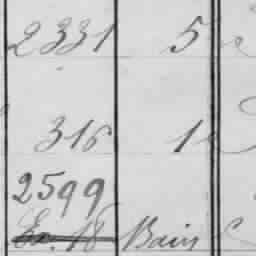 2331 5
316 1
2599
Ex. 18 Bain